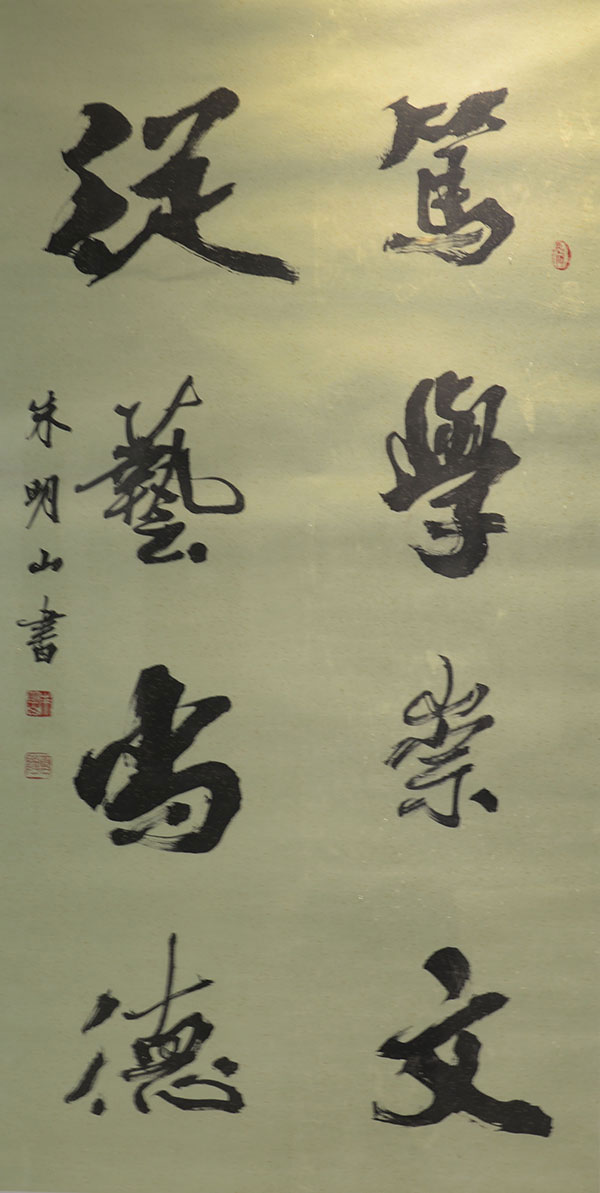 篤學崇文
從藝尚德
朱明山書